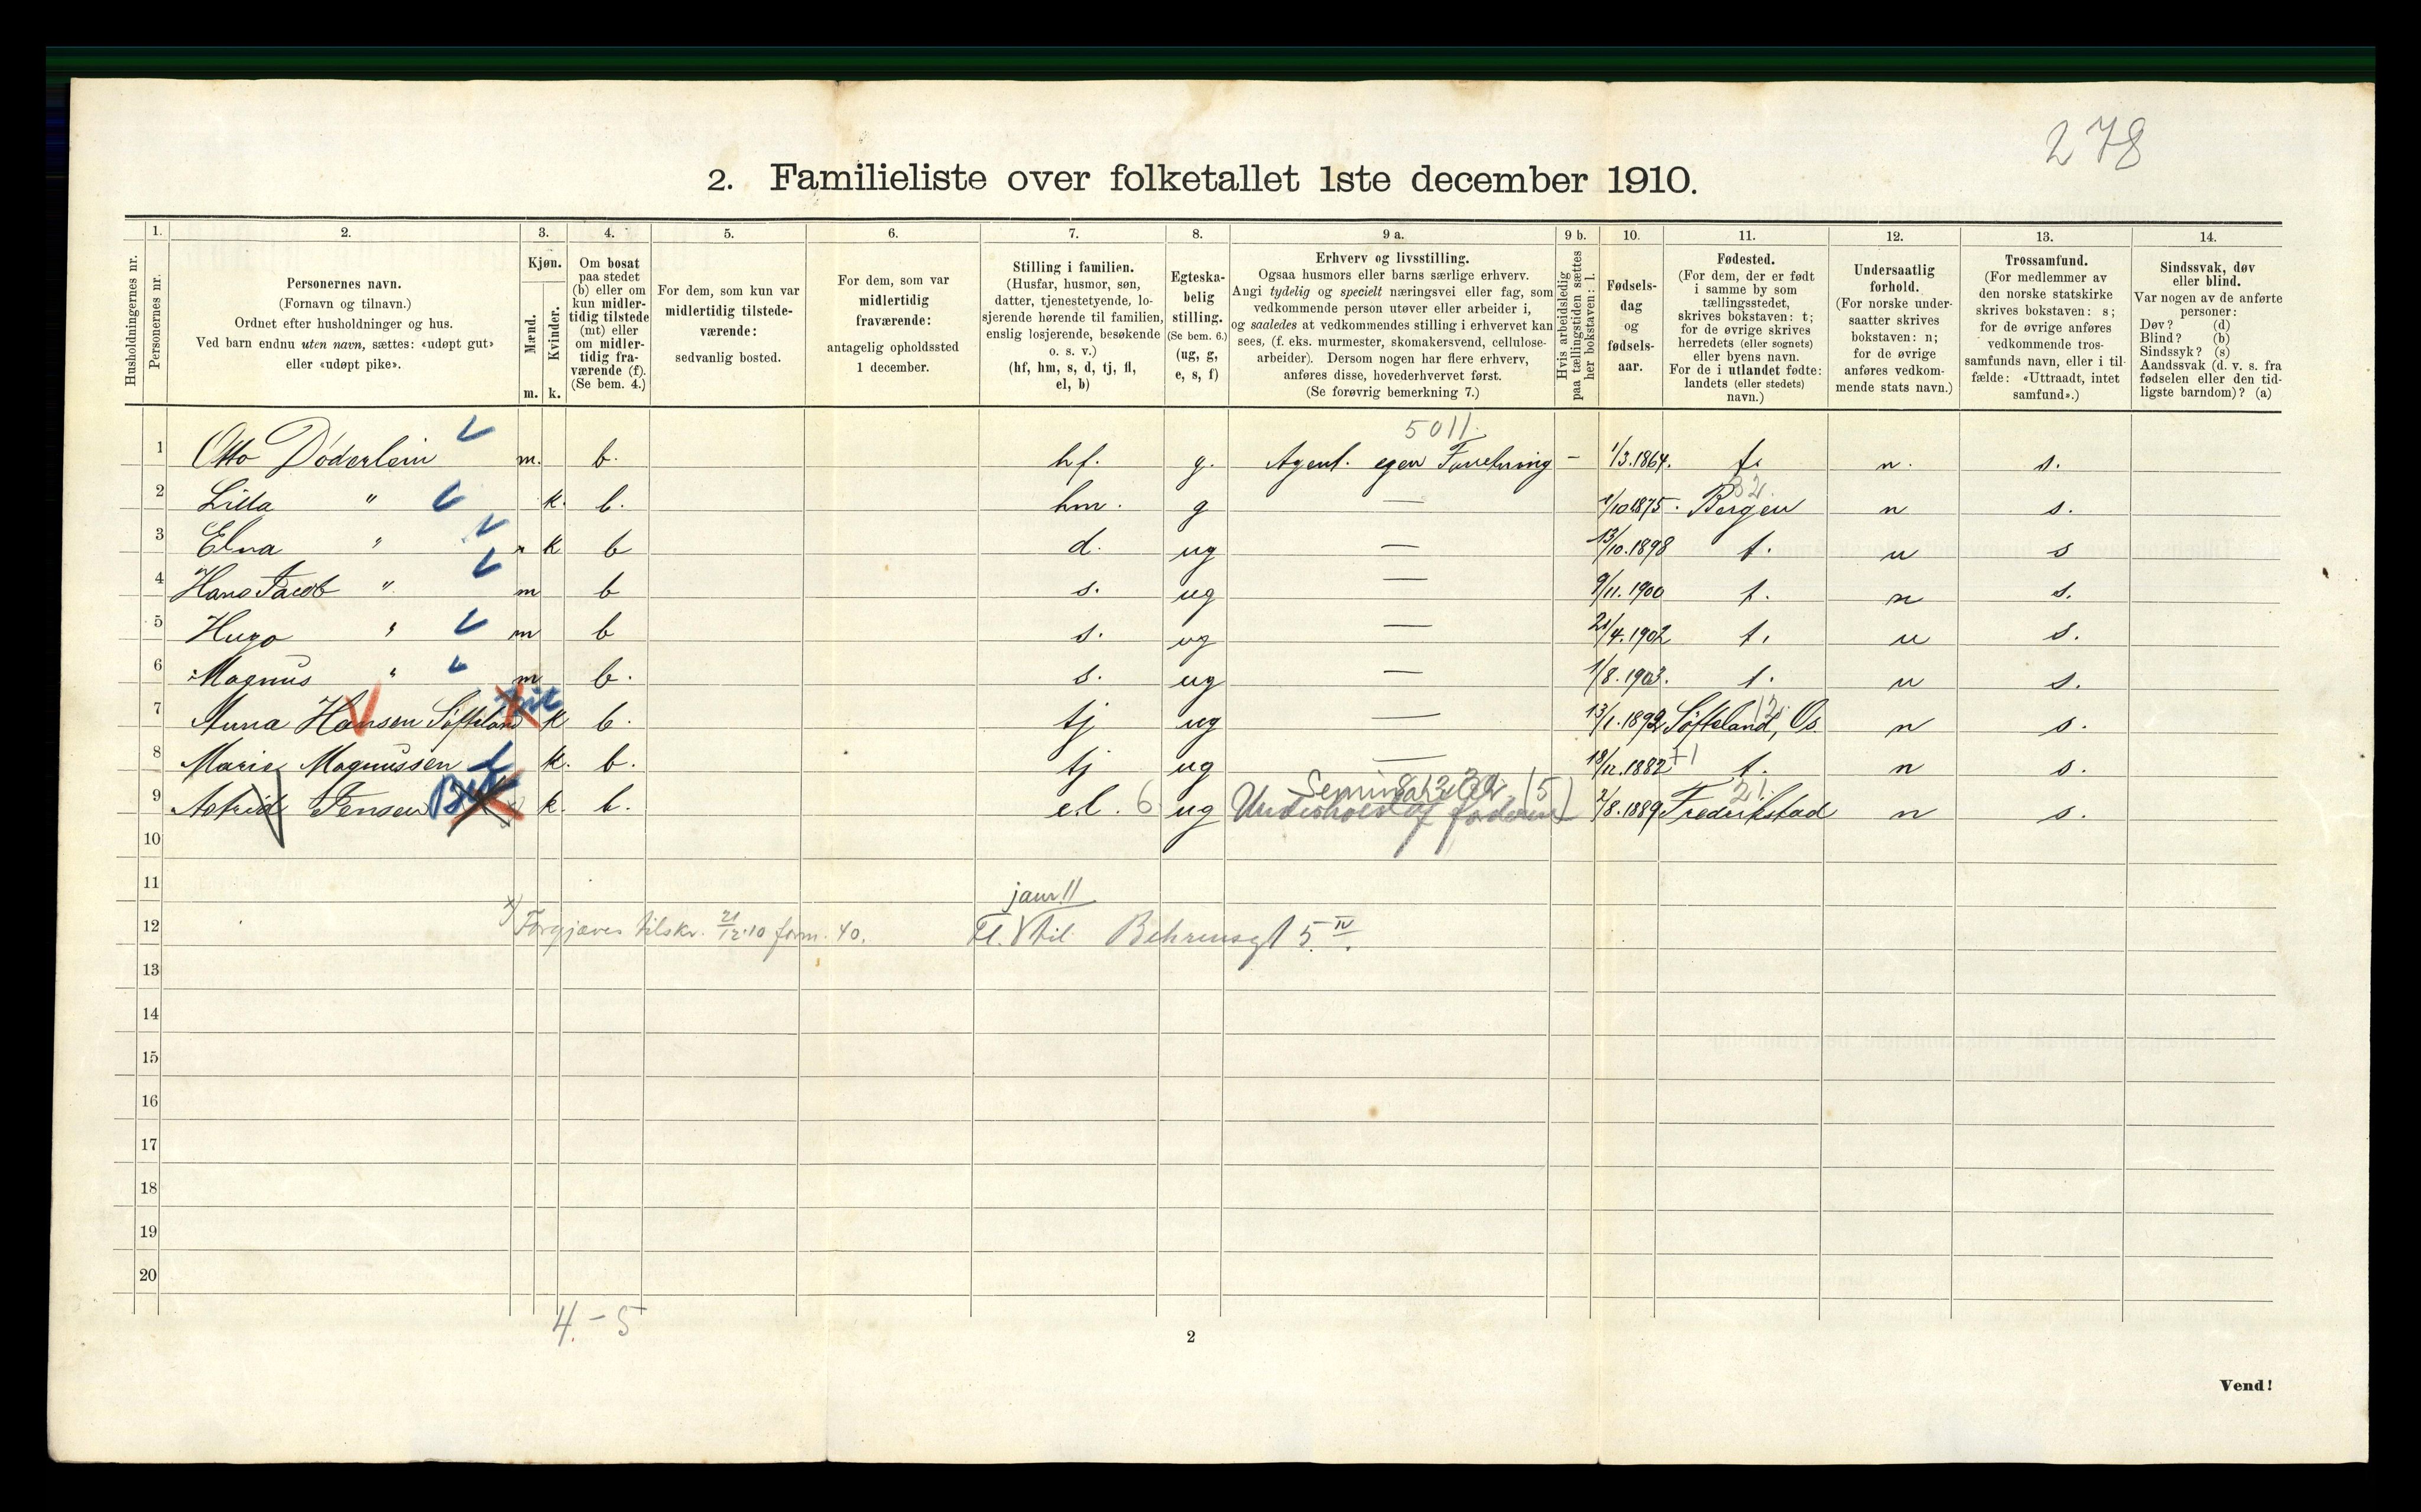 278
2. Familieliste over folketallet 1ste december 1910.
Husholdningernes nr.
1.
Personernes nr.
2.
Personernes navn.
(Fornavn og tilnavn.)
Ordnet efter husholdninger og hus.
Ved barn endnu uten navn, sættes: «udøpt gut»
eller «udøpt pike».
3.
Kjøn.
Mænd.
Kvinder.
m. k.
4.
Om bosat
paa stedet
(b) eller om
kun midler-
tidig tilstede
(mt) eller
om midler-
tidig fra-
værende (f).
(Se bem. 4.)
5.
For dem, som kun var
midlertidig tilstede-
værende:
sedvanlig bosted.
6.
For dem, som var
midlertidig
fraværende:
antagelig opholdssted
1 december.
7.
Stilling i familien.
(Husfar, husmor, søn,
datter, tjenestetyende, lo-
sjerende hørende til familien,
enslig losjerende, besøkende
o. s. v.)
(hf, hm, s, d, tj, fl,
el, b)
8.
Egteska-
belig
stilling.
(Se bem. 6.)
(ug, g,
e, s, f)
9 a.
Erhverv og livsstilling.
Ogsaa husmors eller barns særlige erhverv.
Angi tydelig og specielt næringsvei eller fag, som
vedkommende person utøver eller arbeider i,
og saaledes at vedkommendes stilling i erhvervet kan
sees, (f. eks. murmester, skomakersvend, cellulose-
arbeider). Dersom nogen har flere erhverv,
anføres disse, hovederhvervet først.
(Se forøvrig bemerkning 7.)
9 b.
Hvis arbeidsledig
paa tællingstiden sættes
her bokstaven: l.
10.
Fødsels-
dag
og
fødsels-
aar.
11.
Fødested.
(For dem, der er født
i samme by som
tællingsstedet,
skrives bokstaven: t;
for de øvrige skrives
herredets (eller sognets)
eller byens navn.
For de i utlandet fødte:
landets (eller stedets)
navn.)
12.
Undersaatlig
forhold.
(For norske under-
saatter skrives
bokstaven: n;
for de øvrige
anføres vedkom-
mende stats navn.)
13.
Trossamfund.
(For medlemmer av
den norske statskirke
skrives bokstaven: s;
for de øvrige anføres
vedkommende tros-
samfunds navn, eller i til-
fælde: «Uttraadt, intet
samfund».)
14.
Sindssvak, døv
eller blind.
Var nogen av de anførte
personer:
Døv? (d)
Blind? (b)
Sindssyk? (s)
Aandssvak (d. v. s. fra
fødselen eller den tid-
ligste barndom)? (a)
5011.
1 Otto Döderlein m. b. hf. g. Agent. egen Forretning – 1/3.1864. t. n. s.
32.
2 Lilla " k. b. hm. g — /10.1875. Bergen n s.
3 Elna " k b d. ug — 13/10.1898 t. n s
4 Hans Jacob " m b s. ug — 9/11.1900 t. n s.
5 Hugo " m b s. ug — 21/4.1902 t. n s.
6 Magnus " m b. s. ug — 1/8.1903. t. n s.
7 Anna Hansen Søfteland k b. tj ug — 13/1.1892 Søfteland, Os. n s.
8 Marie Magnussen k. b. tj ug — 18/12.1882 t. n s.
9 Astrid Jensen k. b. el. 6 ug Underholdt af faderen 2/8.1889 Fredrikstad n s.
21.
10
11
jan 11
12 x) Forgjæves tilskr. 21/12.10 form. 40. Fl. til Behrensgt 5 IV.
13
14
15
16
17
18
19
20
4. – 5
2
Vend!